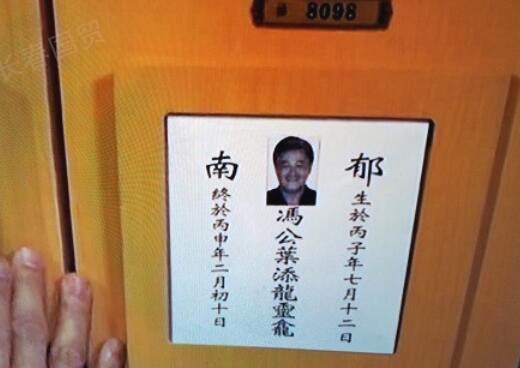 长春国贸
8098
郁
生於丙子年七月十二日
馮公葉添龍靈龕
南
終於丙申年二月初十日